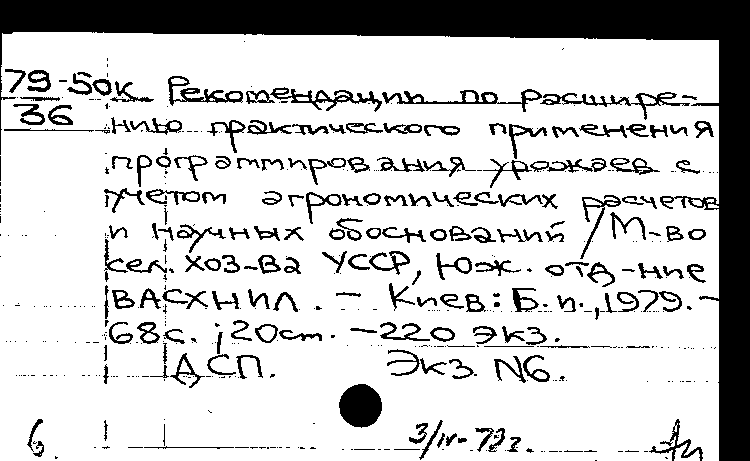 79-50к Рекомендации по расшире-
36
нию практического применения
программирования урожаев с
учетом агрономических расчетов
и научных обоснований / М-во
сел. хоз-ва УССР, Юж. отд-ние
ВАСХНИЛ. — Киев: Б.и., 1979. —
68с.; 20см. — 220 экз.
ДСП. Экз N6.
6. 3/IV-79г.